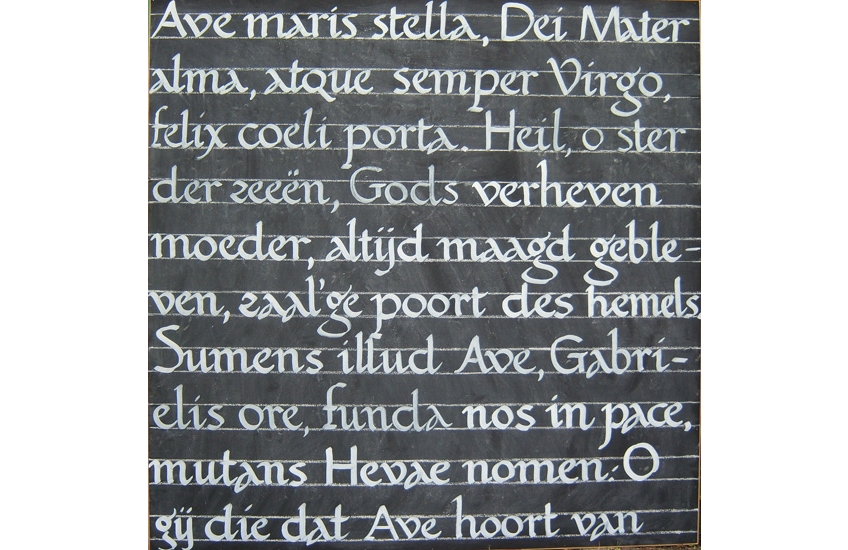 Ave maris stella, Dei Mater
alma, atque semper Virgo,
felix coeli porta. Heil, o ster
der zeeën, Gods verheven
moeder, altijd maagd geble-
ven, zaal'ge poort des hemels.
Sumens illud Ave, Gabri-
elis ore, funda nos in pace,
mutans Hevae nomen. O
gij die dat Ave hoort van